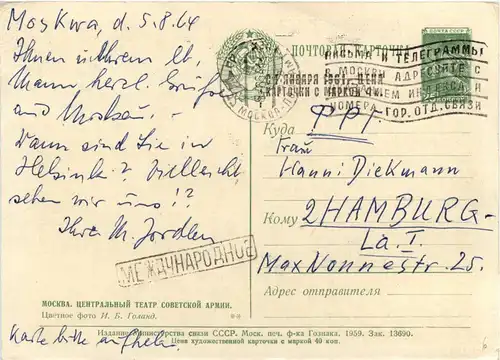 Moskwa, d. 5.8.64
Ihnen u. Ihrem lb.
Mann herzl. Grüße
aus Moskau. –
Wann sind Sie in
Helsinki? Vielleicht
sehen wir uns!?
Ihre M.
МЕЖДУНАРОДНОЕ
МОСКВА. ЦЕНТРАЛЬНЫЙ ТЕАТР СОВЕТСКОЙ АРМИИ.
Цветное фото И. Б. Голанд.
Karte bitte aufheben
ПОЧТОВАЯ КАРТОЧКА
С 1 ЯНВАРЯ 1961 г. ЦЕНА
КАРТОЧКИ С МАРКОЙ 4 к.
ПИСЬМА И ТЕЛЕГРАММЫ
В МОСКВУ АДРЕСУЙТЕ С
НОМЕРА ГОР. ОТД. СВЯЗИ
ПОЧТА СССР
Куда
Frau
Hanni Diekmann
Кому 2HAMBURG-
La. I.
Max Nonnestr. 25.
Адрес отправителя
Издание Министерства связи СССР. Моск. печ. ф-ка Гознака. 1959. Зак. 13690.
Цена художественной карточки с маркой 40 коп.